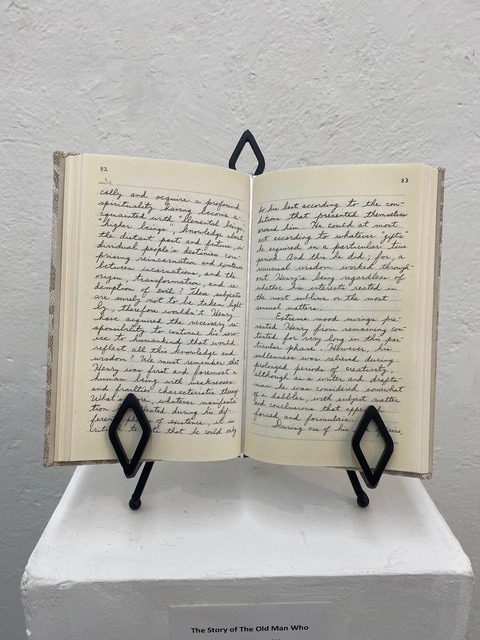 82
cally and acquire a profound
spirituality having become a-
cquainted with "Elemental beings,"
"higher beings", knowledge about
the distant past and future, in-
dividual people's destinies com-
prising reincarnation and
between incarnations, and the
origin, transformation, and re-
demption of evil? These subjects
are surely not to be taken light-
ly; therefore wouldn't Henry
have acquired the necessary re-
sponsibility to continue his serv-
ice to humankind that would
reflect all this knowledge and
wisdom? We must remember that
Henry was first and foremost a
human being with weaknesses
and frailties characteristic thereof.
What's more, whatever
tion during his dif-
of existence, it is
to note that he could only
83
do his best according to the con-
ditions that presented themselves
around him. He could at most
act according to whatever "gifts"
he acquired in a particular time
period. And this he did; for, a
universal wisdom worked through-
out Henry's being regardless of
whether his interests rested in
the most sublime or the most
unusual matters.
Extreme mood swings pre-
vented Henry from remaining con-
tented for very long in this par-
ticular phase. However, his
sullenness was relieved during
prolonged periods of creativity,
although as a writer and drafts-
man he was considered somewhat
of a dabbler, with subject matter
and conclusions that
forced and formulaic.
During one of his
The Story of The Old Man Who